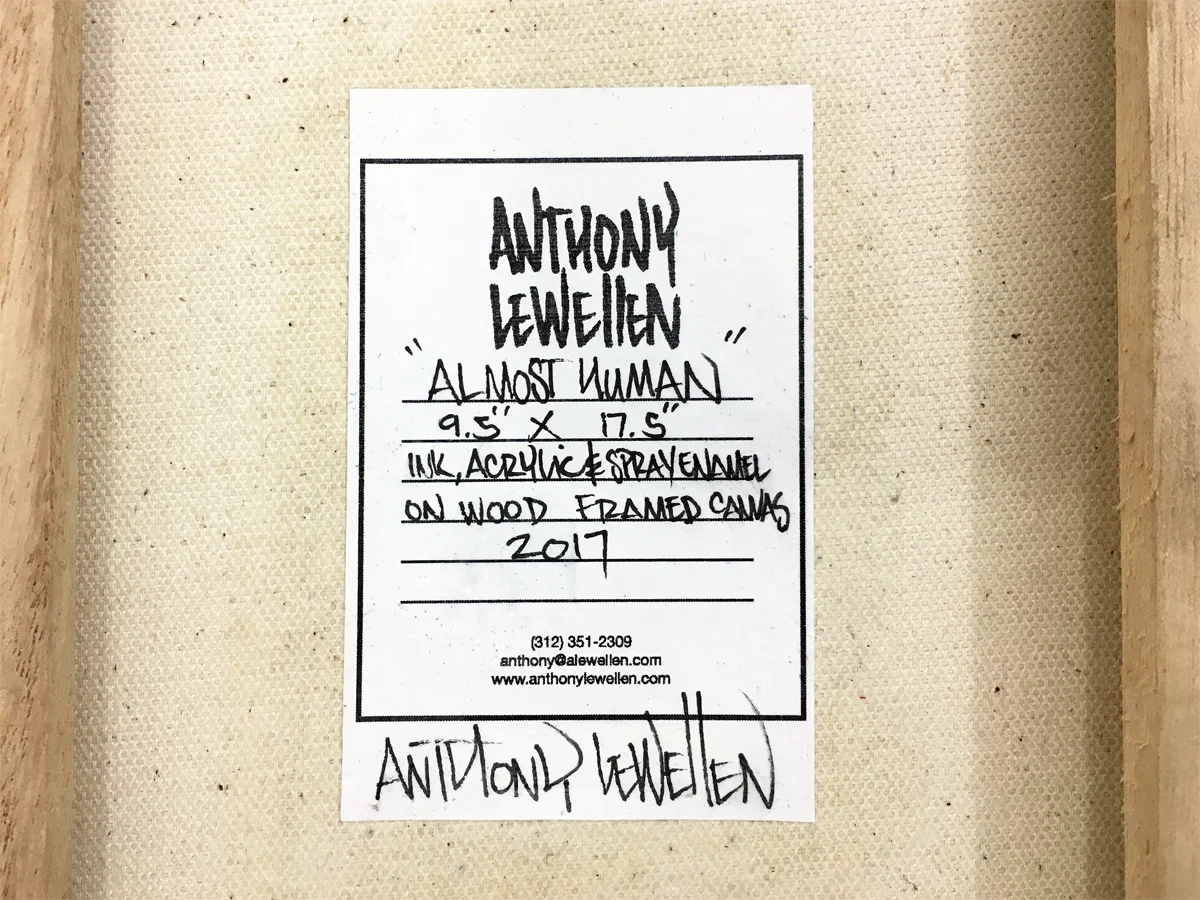 ANTHONY
LEWELLEN
"ALMOST HUMAN"
9.5" X 17.5"
INK, ACRYLIC & SPRAY ENAMEL
ON WOOD FRAMED CANVAS
2017
(312) 351-2309
anthony@alewellen.com
www.anthonylewellen.com
ANTHONY LEWELLEN